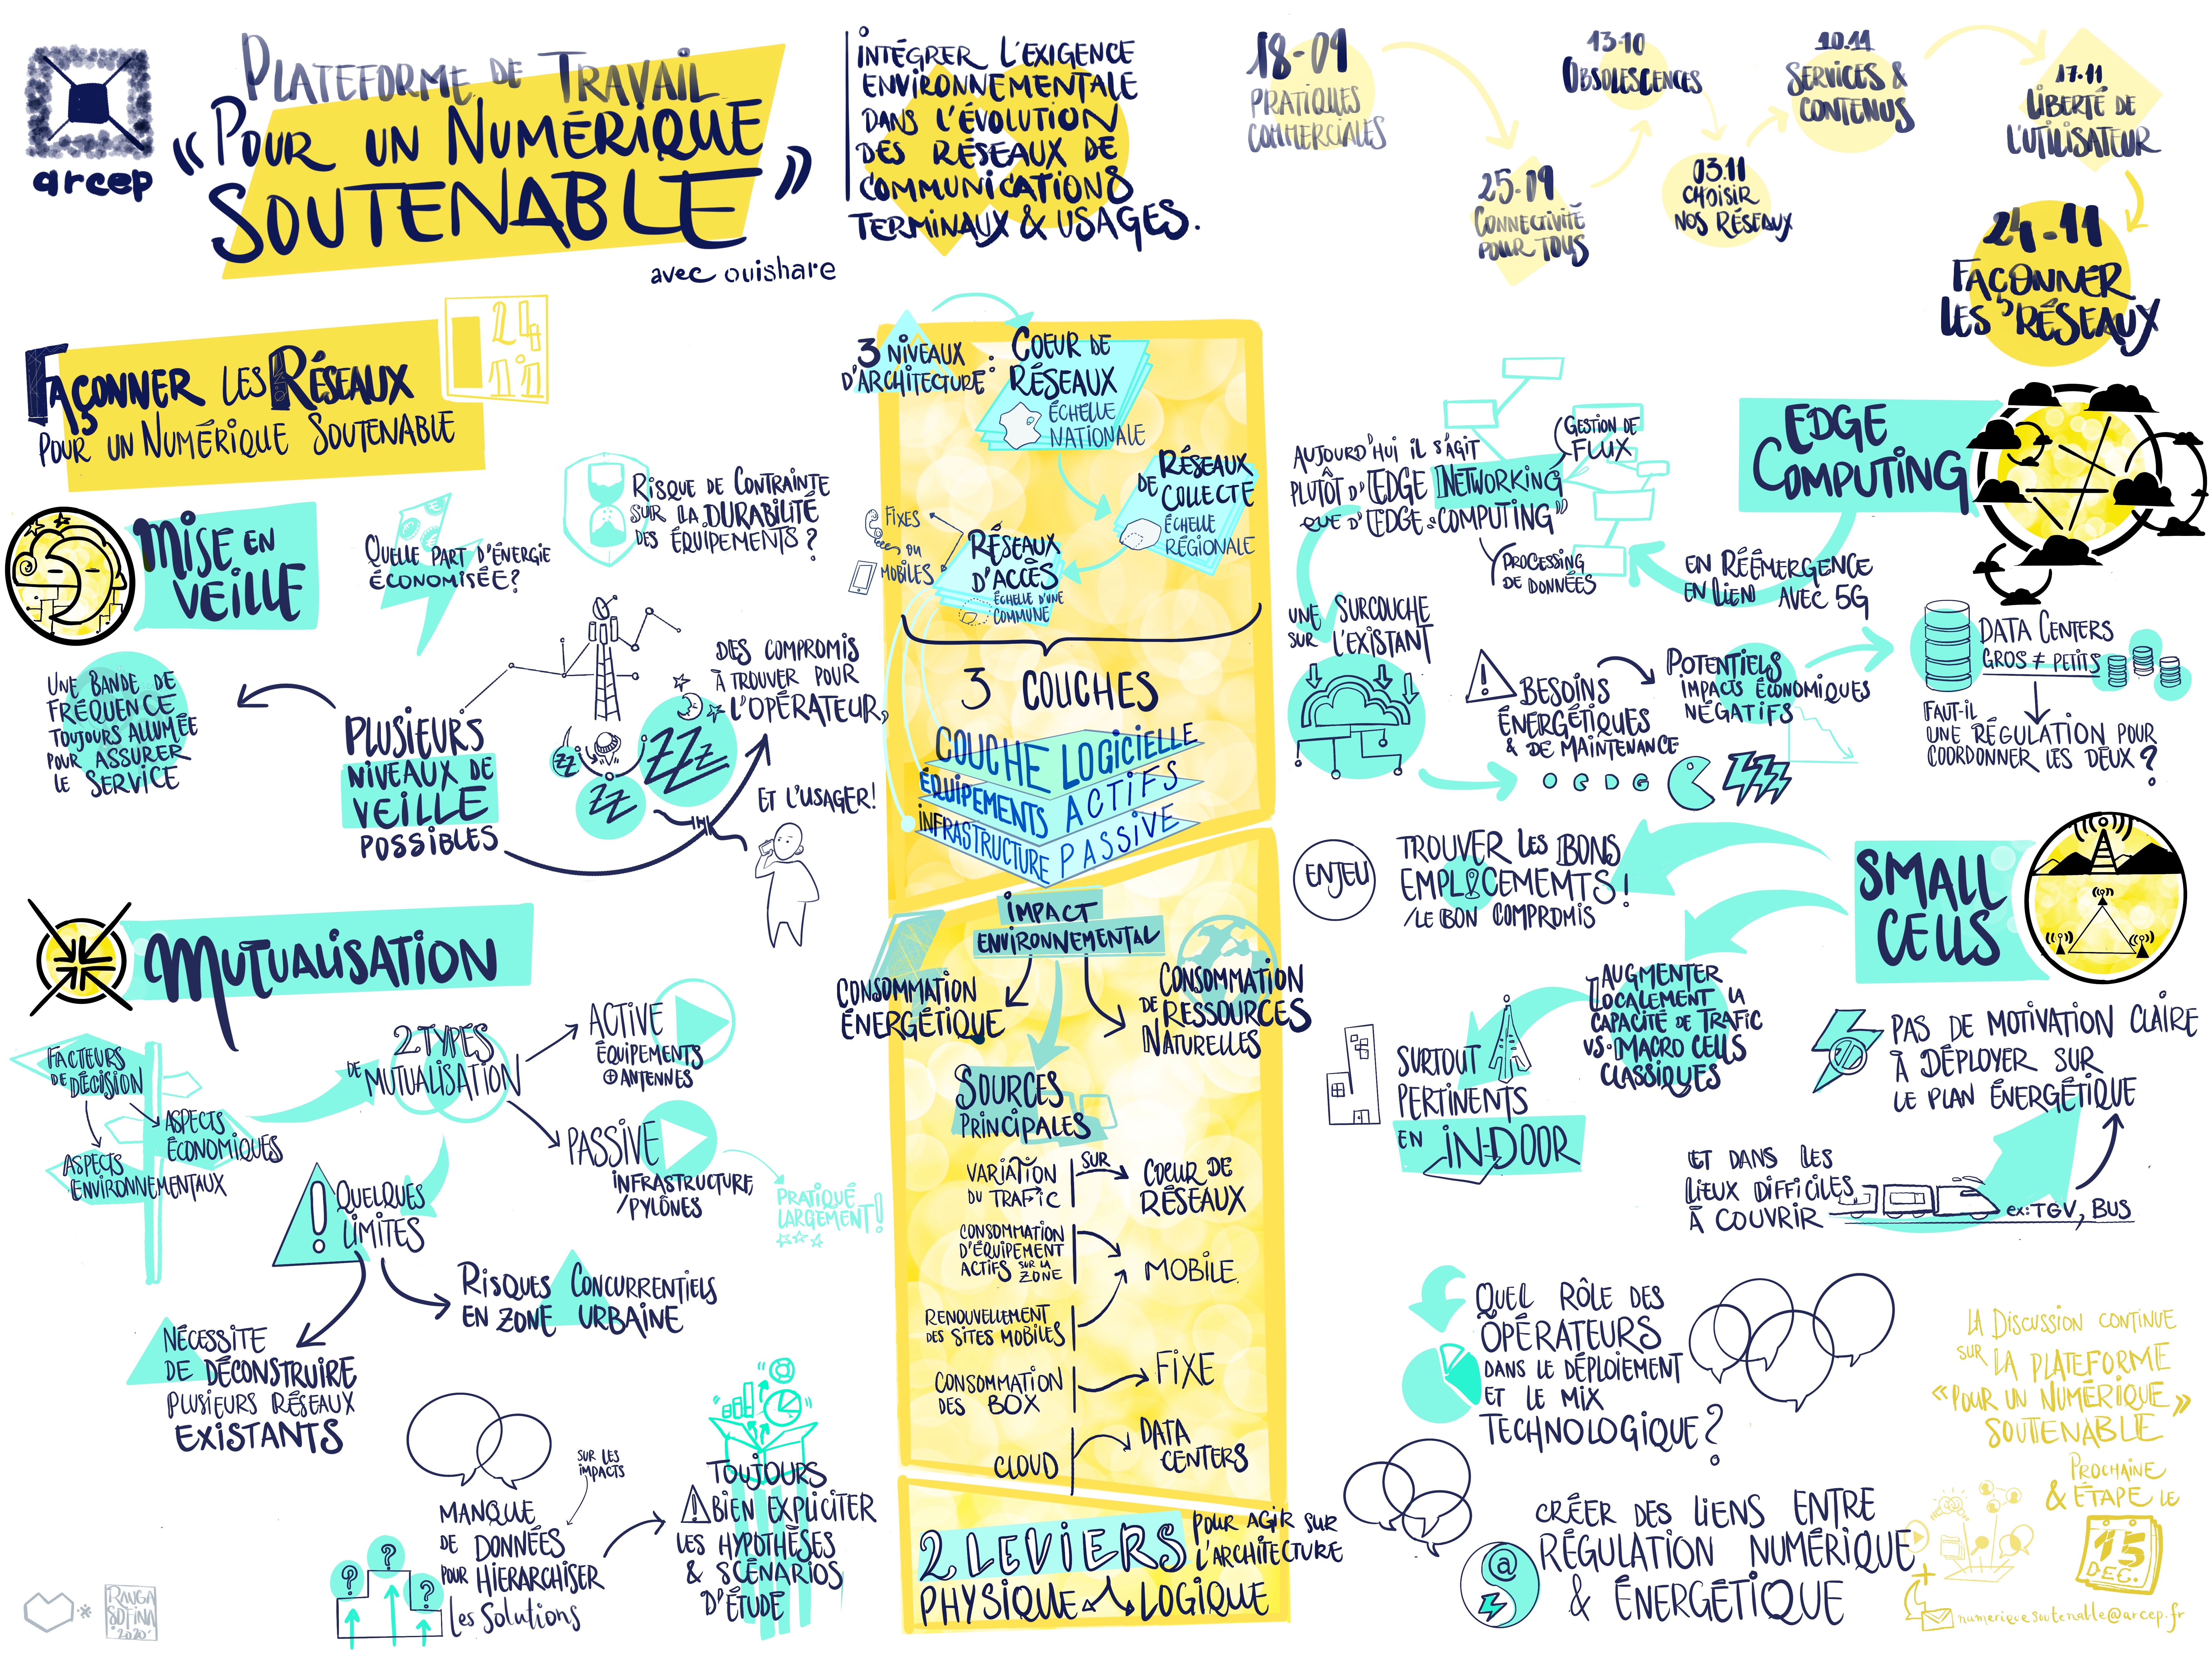 arcep
PLATEFORME DE TRAVAIL
« POUR UN NUMÉRIQUE
SOUTENABLE »
avec ouishare
INTÉGRER L'EXIGENCE
ENVIRONNEMENTALE
DANS L'ÉVOLUTION
DES RÉSEAUX DE
COMMUNICATIONS
TERMINAUX & USAGES.
18-09
PRATIQUES
COMMERCIALES
25-09
CONNECTIVITÉ
POUR TOUS
13-10
OBSOLESCENCES
03.11
CHOISIR
NOS RÉSEAUX
10.11
SERVICES &
CONTENUS
17.11
LIBERTÉ DE
L'UTILISATEUR
24-11
FAÇONNER
LES RÉSEAUX
FAÇONNER LES RÉSEAUX
POUR UN NUMÉRIQUE SOUTENABLE
24
11
MISE EN
VEILLE
QUELLE PART D'ÉNERGIE
ÉCONOMISÉE?
RISQUE DE CONTRAINTE
SUR LA DURABILITÉ
DES ÉQUIPEMENTS?
UNE BANDE DE
FRÉQUENCE
TOUJOURS ALLUMÉE
POUR ASSURER
LE SERVICE
PLUSIEURS
NIVEAUX DE
VEILLE
POSSIBLES
ZZ
ZZ
ZZZ
DES COMPROMIS
À TROUVER POUR
L'OPÉRATEUR,
ET L'USAGER!
MUTUALISATION
FACTEURS
DE DÉCISION
ASPECTS
ÉCONOMIQUES
ASPECTS
ENVIRONNEMENTAUX
2 TYPES
DE MUTUALISATION
ACTIVE
ÉQUIPEMENTS
⊕ ANTENNES
PASSIVE
INFRASTRUCTURE
/PYLÔNES
PRATIQUÉ
LARGEMENT!
! QUELQUES
LIMITES
RISQUES CONCURRENTIELS
EN ZONE URBAINE
NÉCESSITE
DE DÉCONSTRUIRE
PLUSIEURS RÉSEAUX
EXISTANTS
SUR LES
IMPACTS
MANQUE
DE DONNÉES
POUR HIÉRARCHISER
LES SOLUTIONS
? ? ?
TOUJOURS
⚠ BIEN EXPLICITER
LES HYPOTHÈSES
& SCÉNARIOS
D'ÉTUDE
RAUGA
SOFINA
'2020'
3 NIVEAUX
D'ARCHITECTURE :
COEUR DE
RÉSEAUX
ÉCHELLE
NATIONALE
RÉSEAUX
DE COLLECTE
ÉCHELLE
RÉGIONALE
RÉSEAUX
D'ACCÈS
ÉCHELLE D'UNE
COMMUNE
FIXES
OU
MOBILES
3 COUCHES
COUCHE LOGICIELLE
ÉQUIPEMENTS ACTIFS
INFRASTRUCTURE PASSIVE
IMPACT
ENVIRONNEMENTAL
CONSOMMATION
ÉNERGÉTIQUE
CONSOMMATION
DE RESSOURCES
NATURELLES
SOURCES
PRINCIPALES
VARIATION
DU TRAFIC
SUR
COEUR DE
RÉSEAUX
CONSOMMATION
D'ÉQUIPEMENT
ACTIFS SUR LA
ZONE
MOBILE
RENOUVELLEMENT
DES SITES MOBILES
CONSOMMATION
DES BOX
FIXE
CLOUD
DATA
CENTERS
2 LEVIERS POUR AGIR SUR
L'ARCHITECTURE
PHYSIQUE LOGIQUE
EDGE
COMPUTING
EN RÉÉMERGENCE
EN LIEN AVEC 5G
AUJOURD'HUI IL S'AGIT
PLUTÔT D'"EDGE NETWORKING
QUE D'"EDGE COMPUTING"
GESTION DE
FLUX
PROCESSING
DE DONNÉES
UNE SURCOUCHE
SUR L'EXISTANT
⚠ BESOINS
ÉNERGÉTIQUES
& DE MAINTENANCE
POTENTIELS
IMPACTS ÉCONOMIQUES
NÉGATIFS
DATA CENTERS
GROS ≠ PETITS
FAUT-IL
UNE RÉGULATION POUR
COORDONNER LES DEUX?
SMALL
CELLS
ENJEU
TROUVER LES BONS
EMPLACEMEMTS!
/LE BON COMPROMIS
AUGMENTER
LOCALEMENT LA
CAPACITÉ DE TRAFIC
VS. MACRO CELLS
CLASSIQUES
SURTOUT
PERTINENTS
EN IN-DOOR
PAS DE MOTIVATION CLAIRE
À DÉPLOYER SUR
LE PLAN ÉNERGÉTIQUE
ET DANS LES
LIEUX DIFFICILES
À COUVRIR
ex: TGV, BUS
QUEL RÔLE DES
OPÉRATEURS
DANS LE DÉPLOIEMENT
ET LE MIX
TECHNOLOGIQUE?
CRÉER DES LIENS ENTRE
RÉGULATION NUMÉRIQUE
& ÉNERGÉTIQUE
@
LA DISCUSSION CONTINUE
SUR LA PLATEFORME
« POUR UN NUMÉRIQUE »
SOUTENABLE
& PROCHAINE
ÉTAPE LE
15
DEC.
+
numeriquesoutenable@arcep.fr